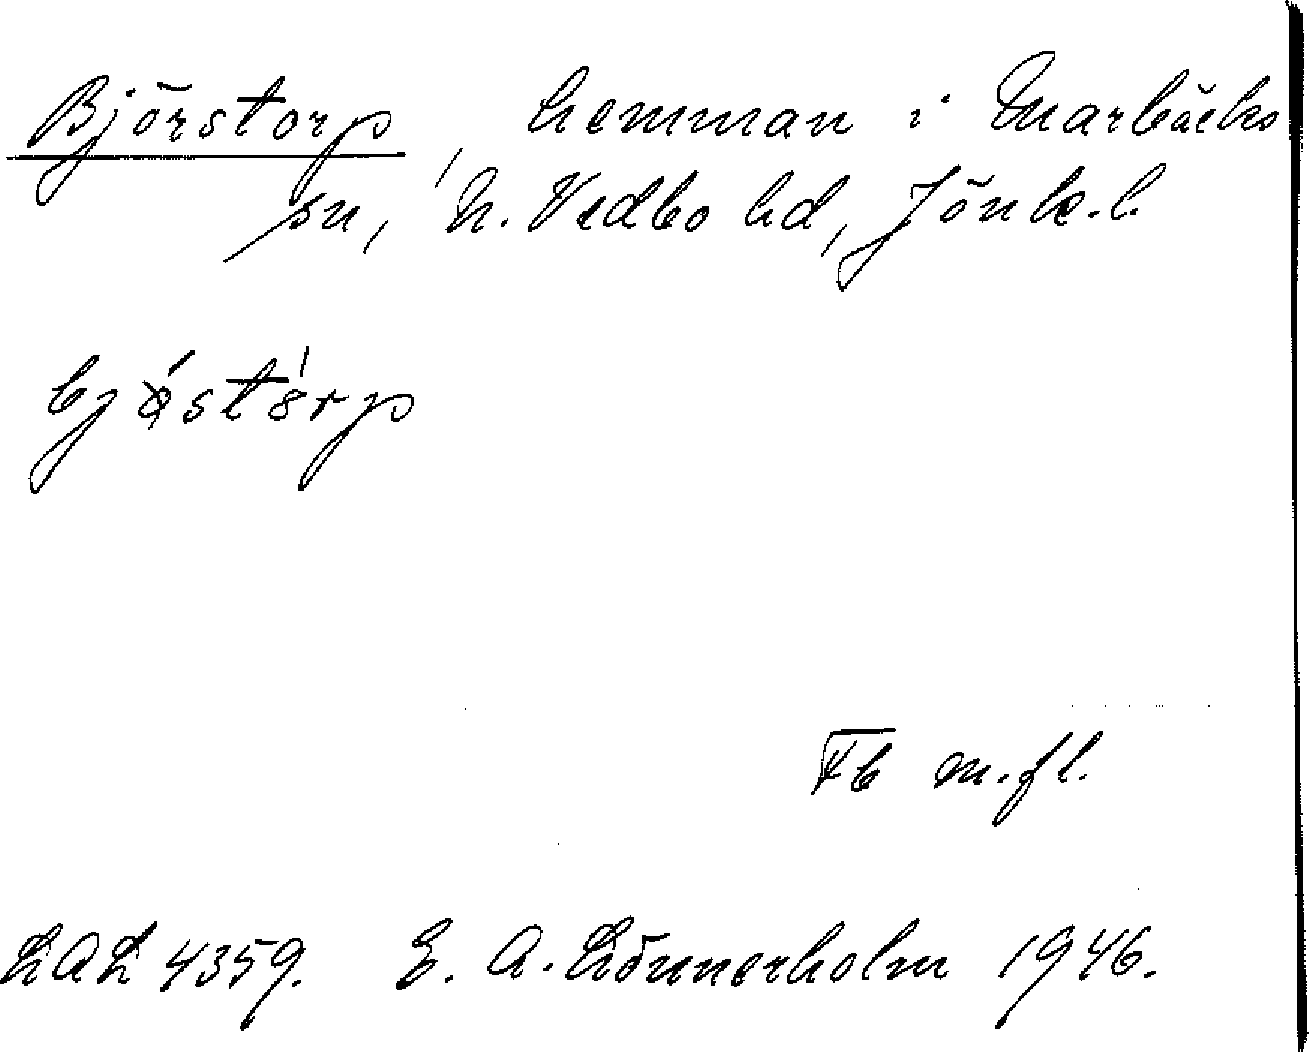 Björstorp, hemman i Marbäcks
sn, N. Vedbo hd, Jönk. l.
bjö́stòrp
Fb m. fl.
LAL 4359. E. A. Lönnerholm 1946.